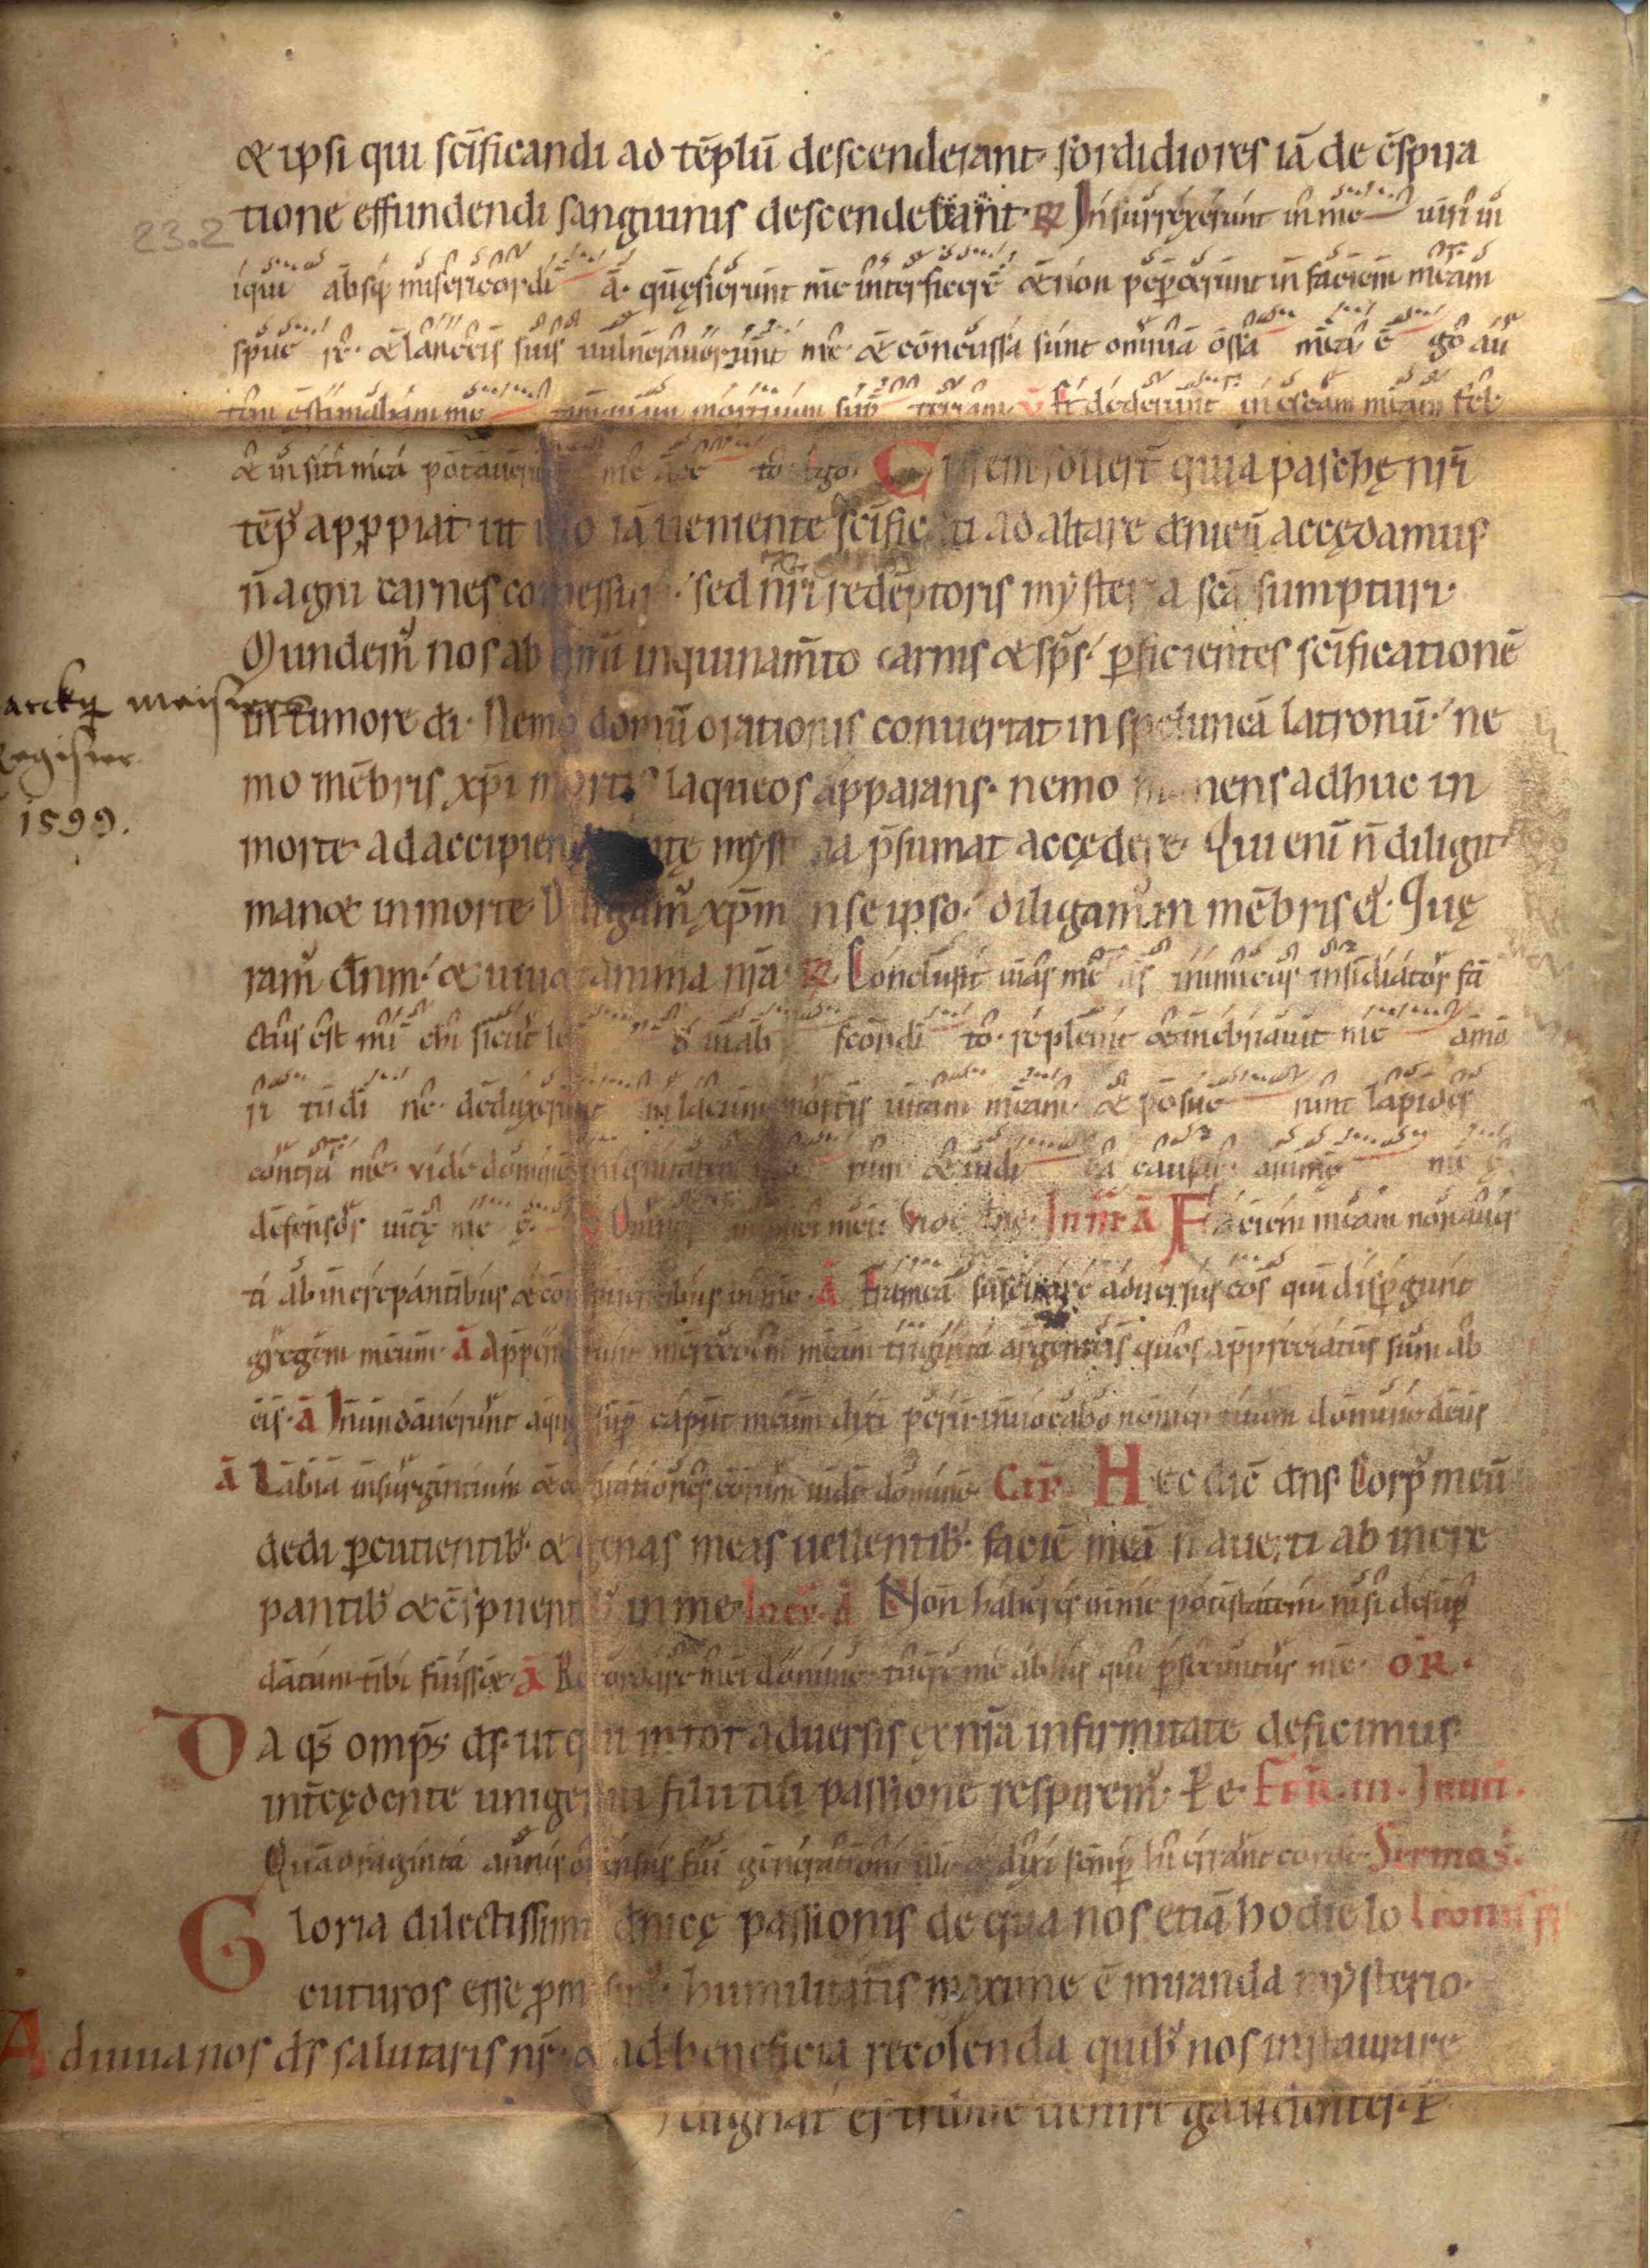 & ipsi qui sc̄ificandi ad tēplū descenderant· sordidiores iā de c̄spira
tione effundendi sanguinis descendebant· R̷ Insurrexerunt in me uiri in
23.2
iqui absq; misericordi a· quęsierunt me interficere & non pepercerunt in faciem meam
spue re· & lanceis suis uulnerauerunt me· & concussa sunt omnia ossa mea e go au
tem estimabam me tamquam mortuum sub terram v̄ Et dederunt in escam meam fel·
& in siti mea potauerunt me ace to· Ego· quia paschę nr̄i
tēp᷒ apꝓpiat ut iā ueniente sc̄ificati ad altare dn̄icū accędamus·
n̄ agni carnes comessuri· sed nr̄i redēptoris mysteria sc̄a sumpturi·
Mundem᷒ nos ab om̄i inquinam̄to carnis & sp̄s· ꝑficientes sc̄ificationē
arckq meisters
in timore dī· Nemo domū orationis conuertat in speluncā latronū· ne
Register
mo mēbris xp̄i mortis laqueos apparans· nemo manens adhuc in
1599.
morte· ad accipienda mysteria p̄sumat accędere· Qui enī n̄ diligit·
man& in morte· Diligam᷒ xp̄m in se ipso· diligam᷒ in mēbris ei᷒· Quę
ram᷒ dn̄m· & uiu& anima nr̄a· R̷ Conclusit uias me as inimicus insidiator fa
ctus est mi chi sicut leo in ab scondi to· repleuit & inebriauit me ama
ri tudi ne· deduxerunt in lacum mortis uitam meam· & posue runt lapides
contra me· vide domine iniquitates rum & iudi ca causam animę me ę
defensor uitę me ę· v̄ Omnes inimici mei· Vide dn̄e· In m̄ Ā Faciem meam non auer
ti ab increpantibus & conspuentibus in me· Ā Framea suscitare aduersus eos qui dispergunt
gregem meum· Ā Appenderunt mercedem meam triginta argenteis quos appreciatus sum ab
eis· Ā Inundauerunt aquę sup̄ caput meum dixi perii· inuocabo nomen tuum domine deus
Ā Labia insurgentium & cogitationes eorum uide domine· Cap̄· Hec dic̄ dn̄s· Corp᷒ meū
dedi ꝑcutientib᷒· & genas meas uellentib᷒· faciē meā n̄ auerti ab incre
pantib᷒ & c̄spuentib᷒ in me· Ā Non haberes in me potestatem· nisi desup̄
datum tibi fuiss&· Ā Recordare mei domine· tuere me ab his qui ꝑsecuntur me· OR̄·
Da qs̄ omp̄s ds̄· ut qui in tot aduersis ex nr̄a infirmitate deficimus·
int̄cędente unigeniti filii tui passione respirem᷒· P̄ e· FER̄· III· Inuit·
Quadraginta annis offensus fui generationi illi· & dixi semp̄ hi errant corde· Sermo s̄·
Gloria dilectissimi dn̄icę passionis de qua nos etiā hodie lo Leonis
cuturos esse ꝓmisim᷒· humilitatis maxime ē miranda mysterio·
Adiuua nos ds̄ salutaris nr̄· & ad beneficia recolenda quib᷒ nos instaurare
dignat᷒ es tribue uenire gaudentes· P̄